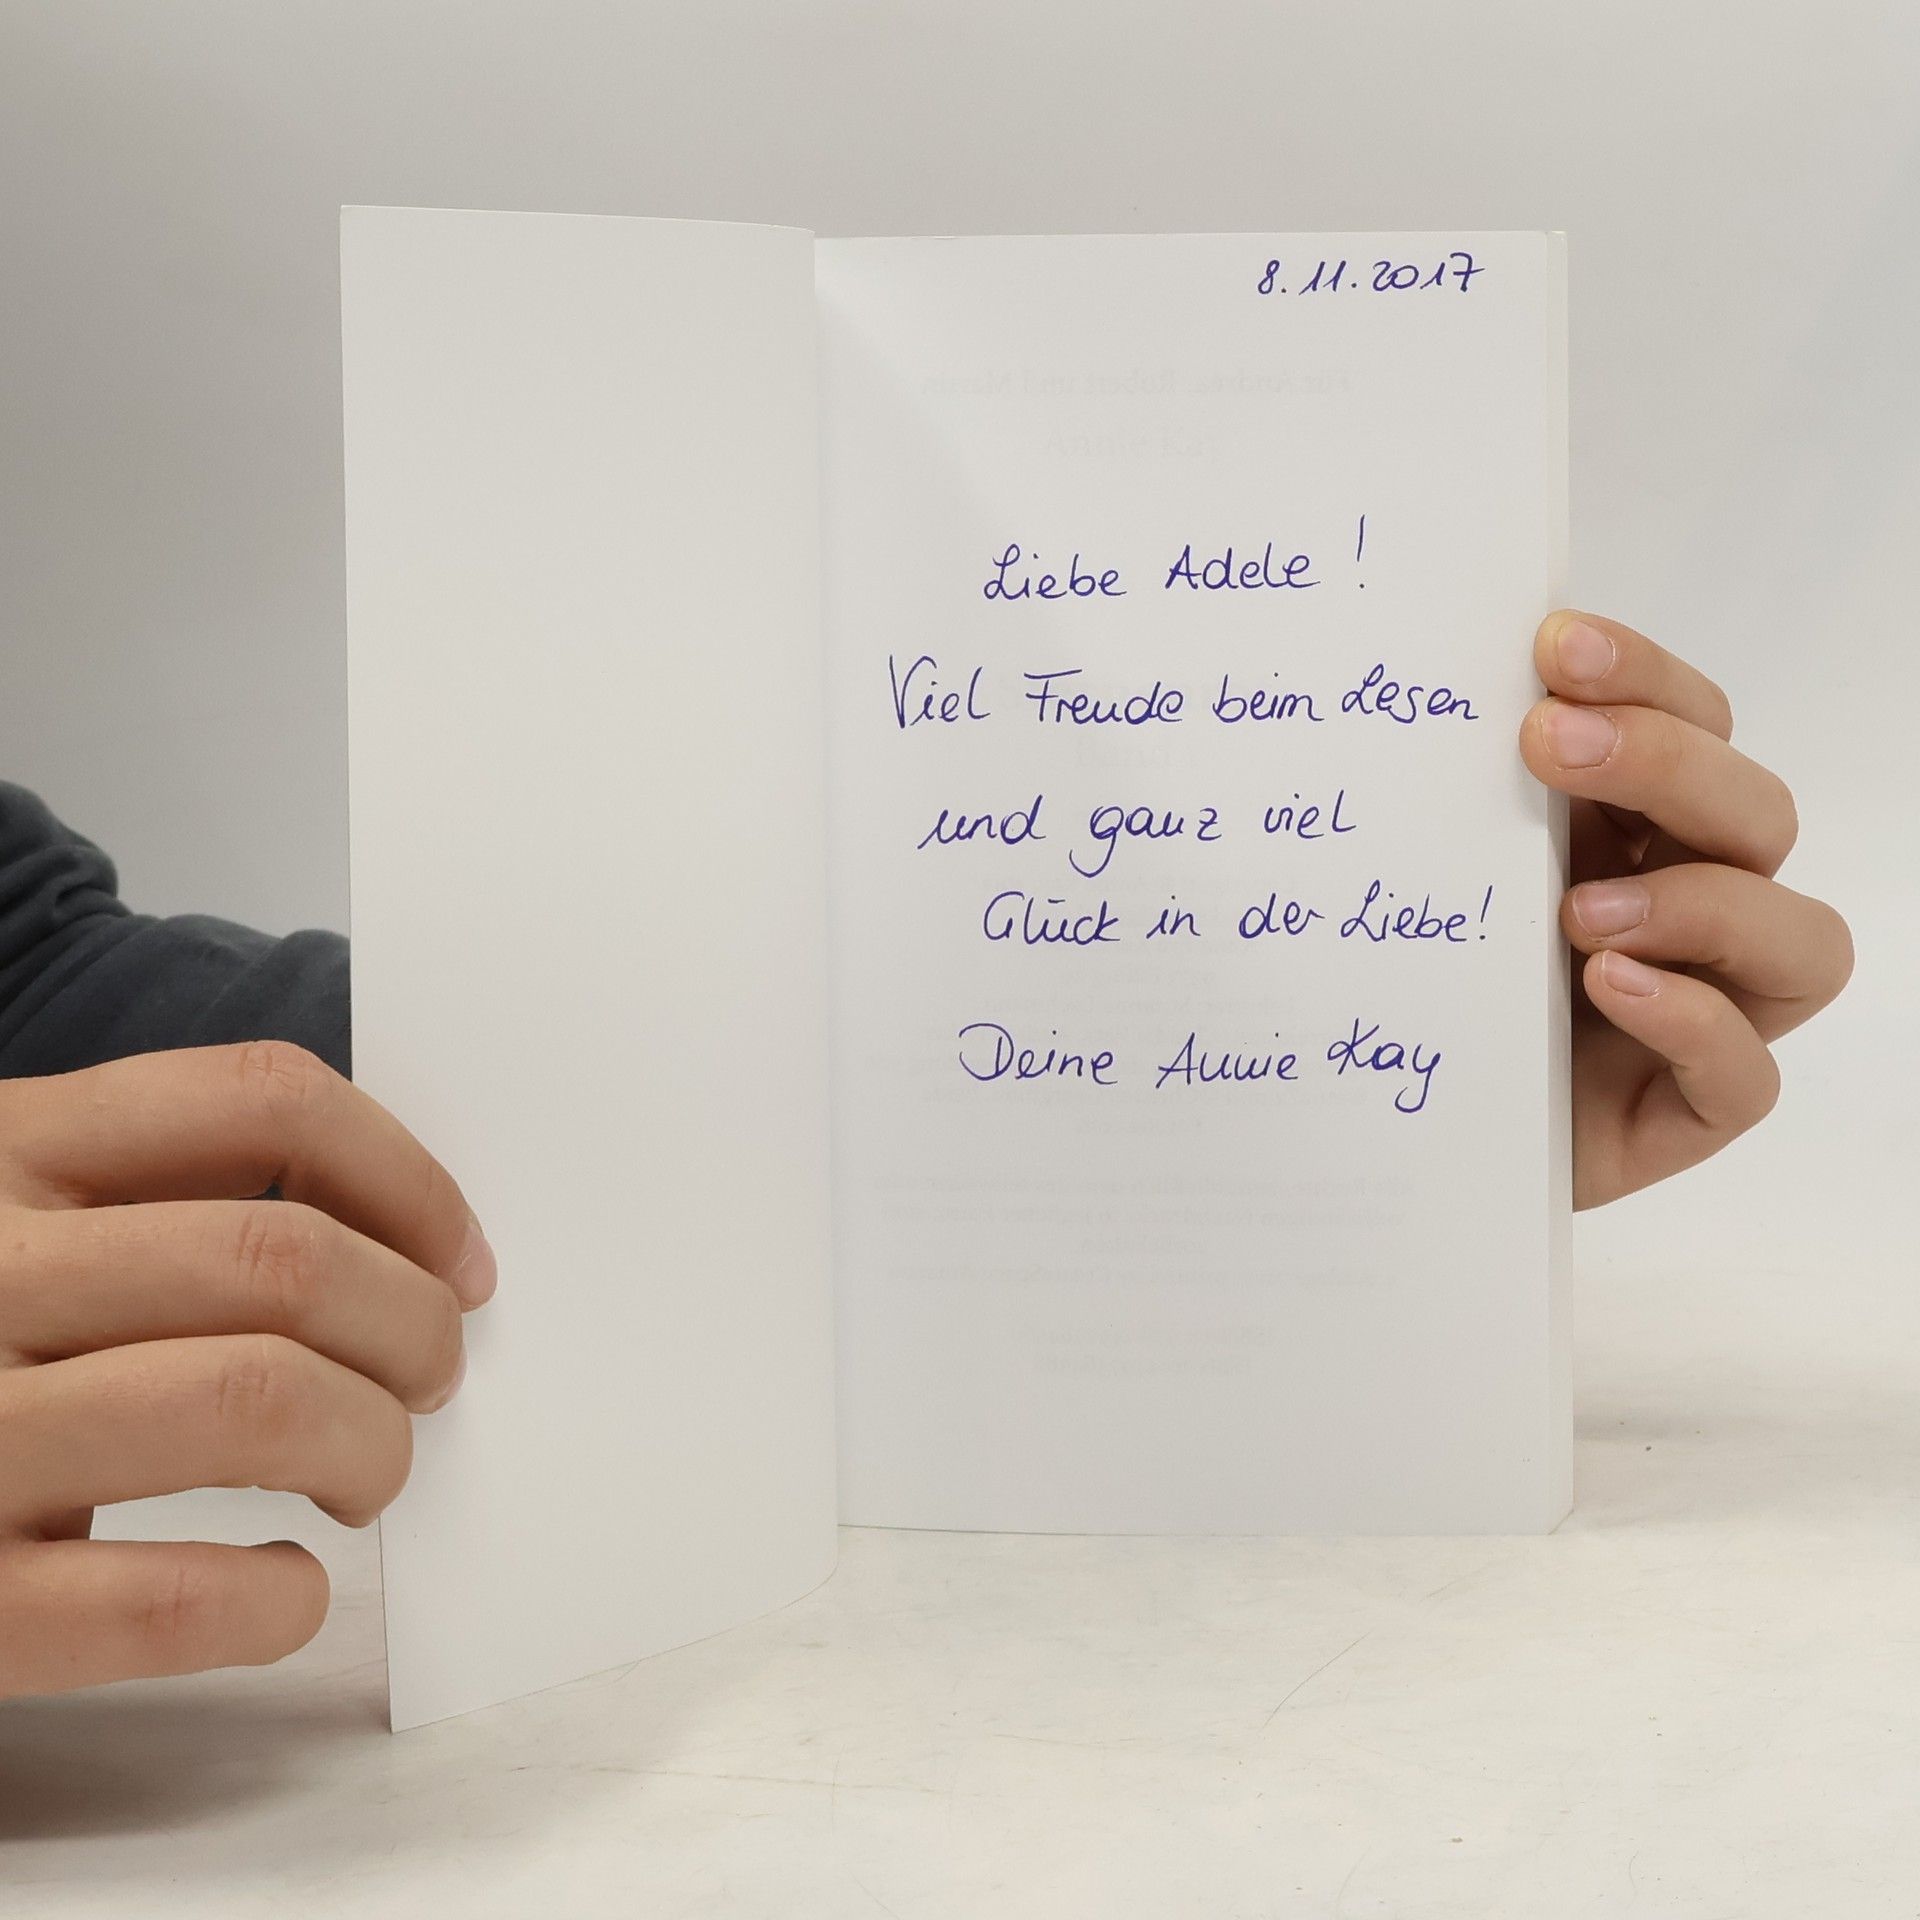 8.11.2017
Liebe Adele!
Viel Freude beim Lesen
und ganz viel
Glück in der Liebe!
Deine Annie Kay